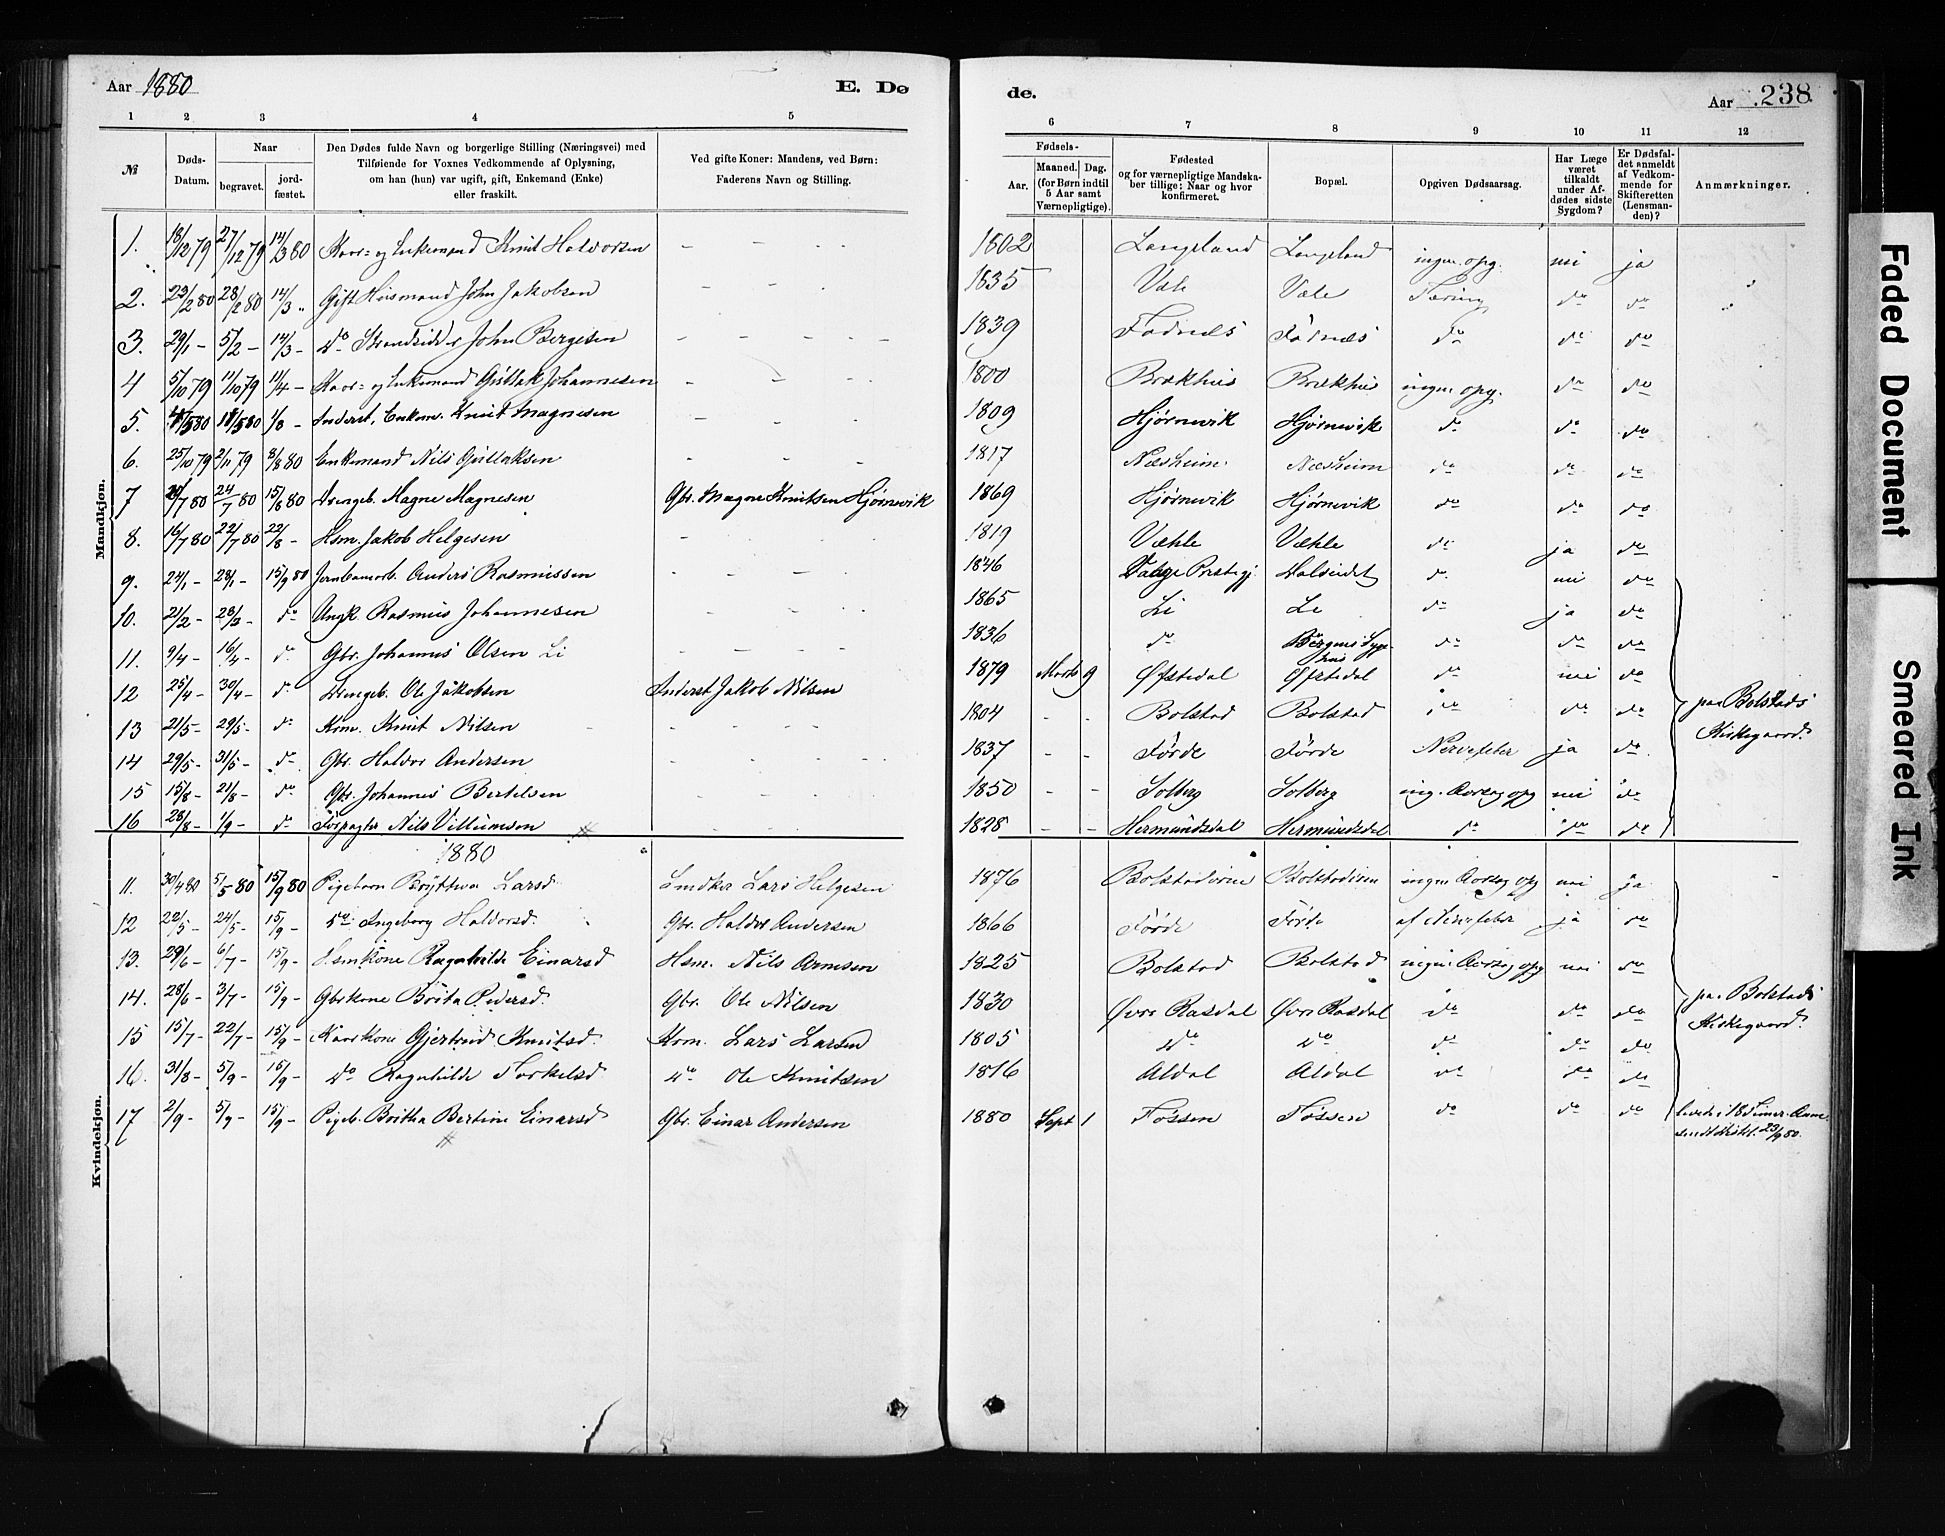 Aar 1880 E. Dø
de. Aar 238
1 2 3 4 5
6 7 8 9 10 11 12
№ Døds-Datum. Naar begravet. jord-fæstet. Den Dødes fulde Navn og borgerlige Stilling (Næringsvei) med Tilføiende for Voxnes Vedkommende af Oplysning, om han (hun) var ugift, gift, Enkemand (Enke) eller fraskilt. Ved gifte Koner: Mandens, ved Børn: Faderens Navn og Stilling.
Fødsels- Aar. Maaned. Dag. (for Børn indtil 5 Aar samt Værnepligtige). Fødested og for værnepligtige Mandskaber tillige: Naar og hvor konfirmeret. Bopæl. Opgiven Dødsaarsag. Har Læge været tilkaldt under Afdødes sidste Sygdom? Er Dødsfaldet anmeldt af Vedkommende for Skifteretten (Lensmanden)? Anmærkninger.
Mandkjøn.
1. 18/12 79 27/12 79 14/3 80 Kaar= og Enkemand Knut Halvorsen - - - - 1802 Langeland Langeland ingen opg. nei ja
2. 23/2 80 28/2 80 14/3 " Gift Husmand John Jakobsen - - - 1835 Væle Væle Tæring do do
3. 29/1 - 5/2 - 14/3 - do Strandsidder John Bergesen - - - - 1839 Fadnes Fadnes do do do
4 5/10 79 11/10 79 11/4 - Kaar= og Enkemand Guttak Johannesen - - - 1800 Brækhus Brækhus ingen opg. do do
5. 11/5 80 18/5 80 1/8 - Inderst, Enkem. Knut Magnesen - - - 1809 Hjørnevik Hjørnevik do do do
6. 25/10 79 2/11 79 8/8 80 Enkemand Nils Guttaksen - - - 1817 Næsheim Næsheim do do do
7 20/7 80 24/7 80 15/8 80 Drengeb. Magne Magnesen Gbr. Magne Knutsen Hjørnevik 1869 Hjørnevik Hjørnevik do do do
8. 16/7 80 22/7 80 22/8 - Hsm. Jakob Helgesen - - - 1819 Væhle Væhle do ja do
9. 24/1 - 28/1 - 15/9 80 Jernbanearb. Anders Rasmussen - - - 1846 Præstegj. do nei do
10. 21/2 - 28/3 - do Ungk. Rasmus Johannesen - - - 1865 Li Li do ja do
11. 9/4 - 16/4 - do Gbr. Johannes Olsen Li - - - 1836 do Bergens Sygehus do do do
12 25/4 - 30/4 - do Drengeb. Ole Jakobsen Inderst Jakob Nilsen 1879 Marts 9 Øfstedal Øfstedal do nei do
13 21/5 - 29/5 - do Krm. Knut Nilsen - - - 1804 - - Bolstad Bolstad do do do
14 29/5 - 31/5 - do Gbr. Haldor Andersen - - - 1837 - - Førde Førde Nervefeber ja do
15 15/8 - 21/8 - do Gbr. Johannes Bertelsen - - - 1850 - - Solberg Solberg ing. Aarsag opg nei do
16 28/8 - 1/9 - do Forpagter Nils Villumsen # 1828 - - Hermundsdal Hermundsdal do do do
paa Bolstads Kirkegaard.
Kvindekjøn.
1880
11. 30/4 80 5/5 80 15/9 80 Pigebarn Bryttva Larsd. Lars Helgesen 1876 Bolstadøren Bolstadøren ingen Aarsag opg nei ja
12 22/5 - 24/5 - 15/9 - do Ingeborg Haldorsd. Gbr. Haldor Andersen 1866 Førde Førde af Nervefeber ja do
13. 29/6 - 6/7 - 15/9 - Hsmkone Ragnhilde Einarsd Hsm. Nils Arnesen 1825 Bolstad Bolstad ingen Aarsag opg nei do
14. 28/6 - 3/7 - 15/9 - Gbrkone Brita Andersd. Gbr. Ole Nilsen 1830 Øvre Rasdal Øvre Rasdal do do do
15 15/7 - 22/7 - 15/9 - Kaarkone Gjertrud Knutsd. Krm. Lars Larsen 1805 do do do do do
16. 31/8 - 5/9 - 15/9 - do Ragnhilde Torkelsd do Ole Knutsen 1816 Aldal Aldal do do do
17 2/9 - 5/9 - 15/9 - Pigeb. Britha Bertine Einarsd Gbr. Einar Andersen 1880 Sept 1 Fossen Fossen do do do levede i 18 Timer. Anm.
23/9 80.
#
paa Bolstads Kirkegaard.
Faded Document
Smeared Ink